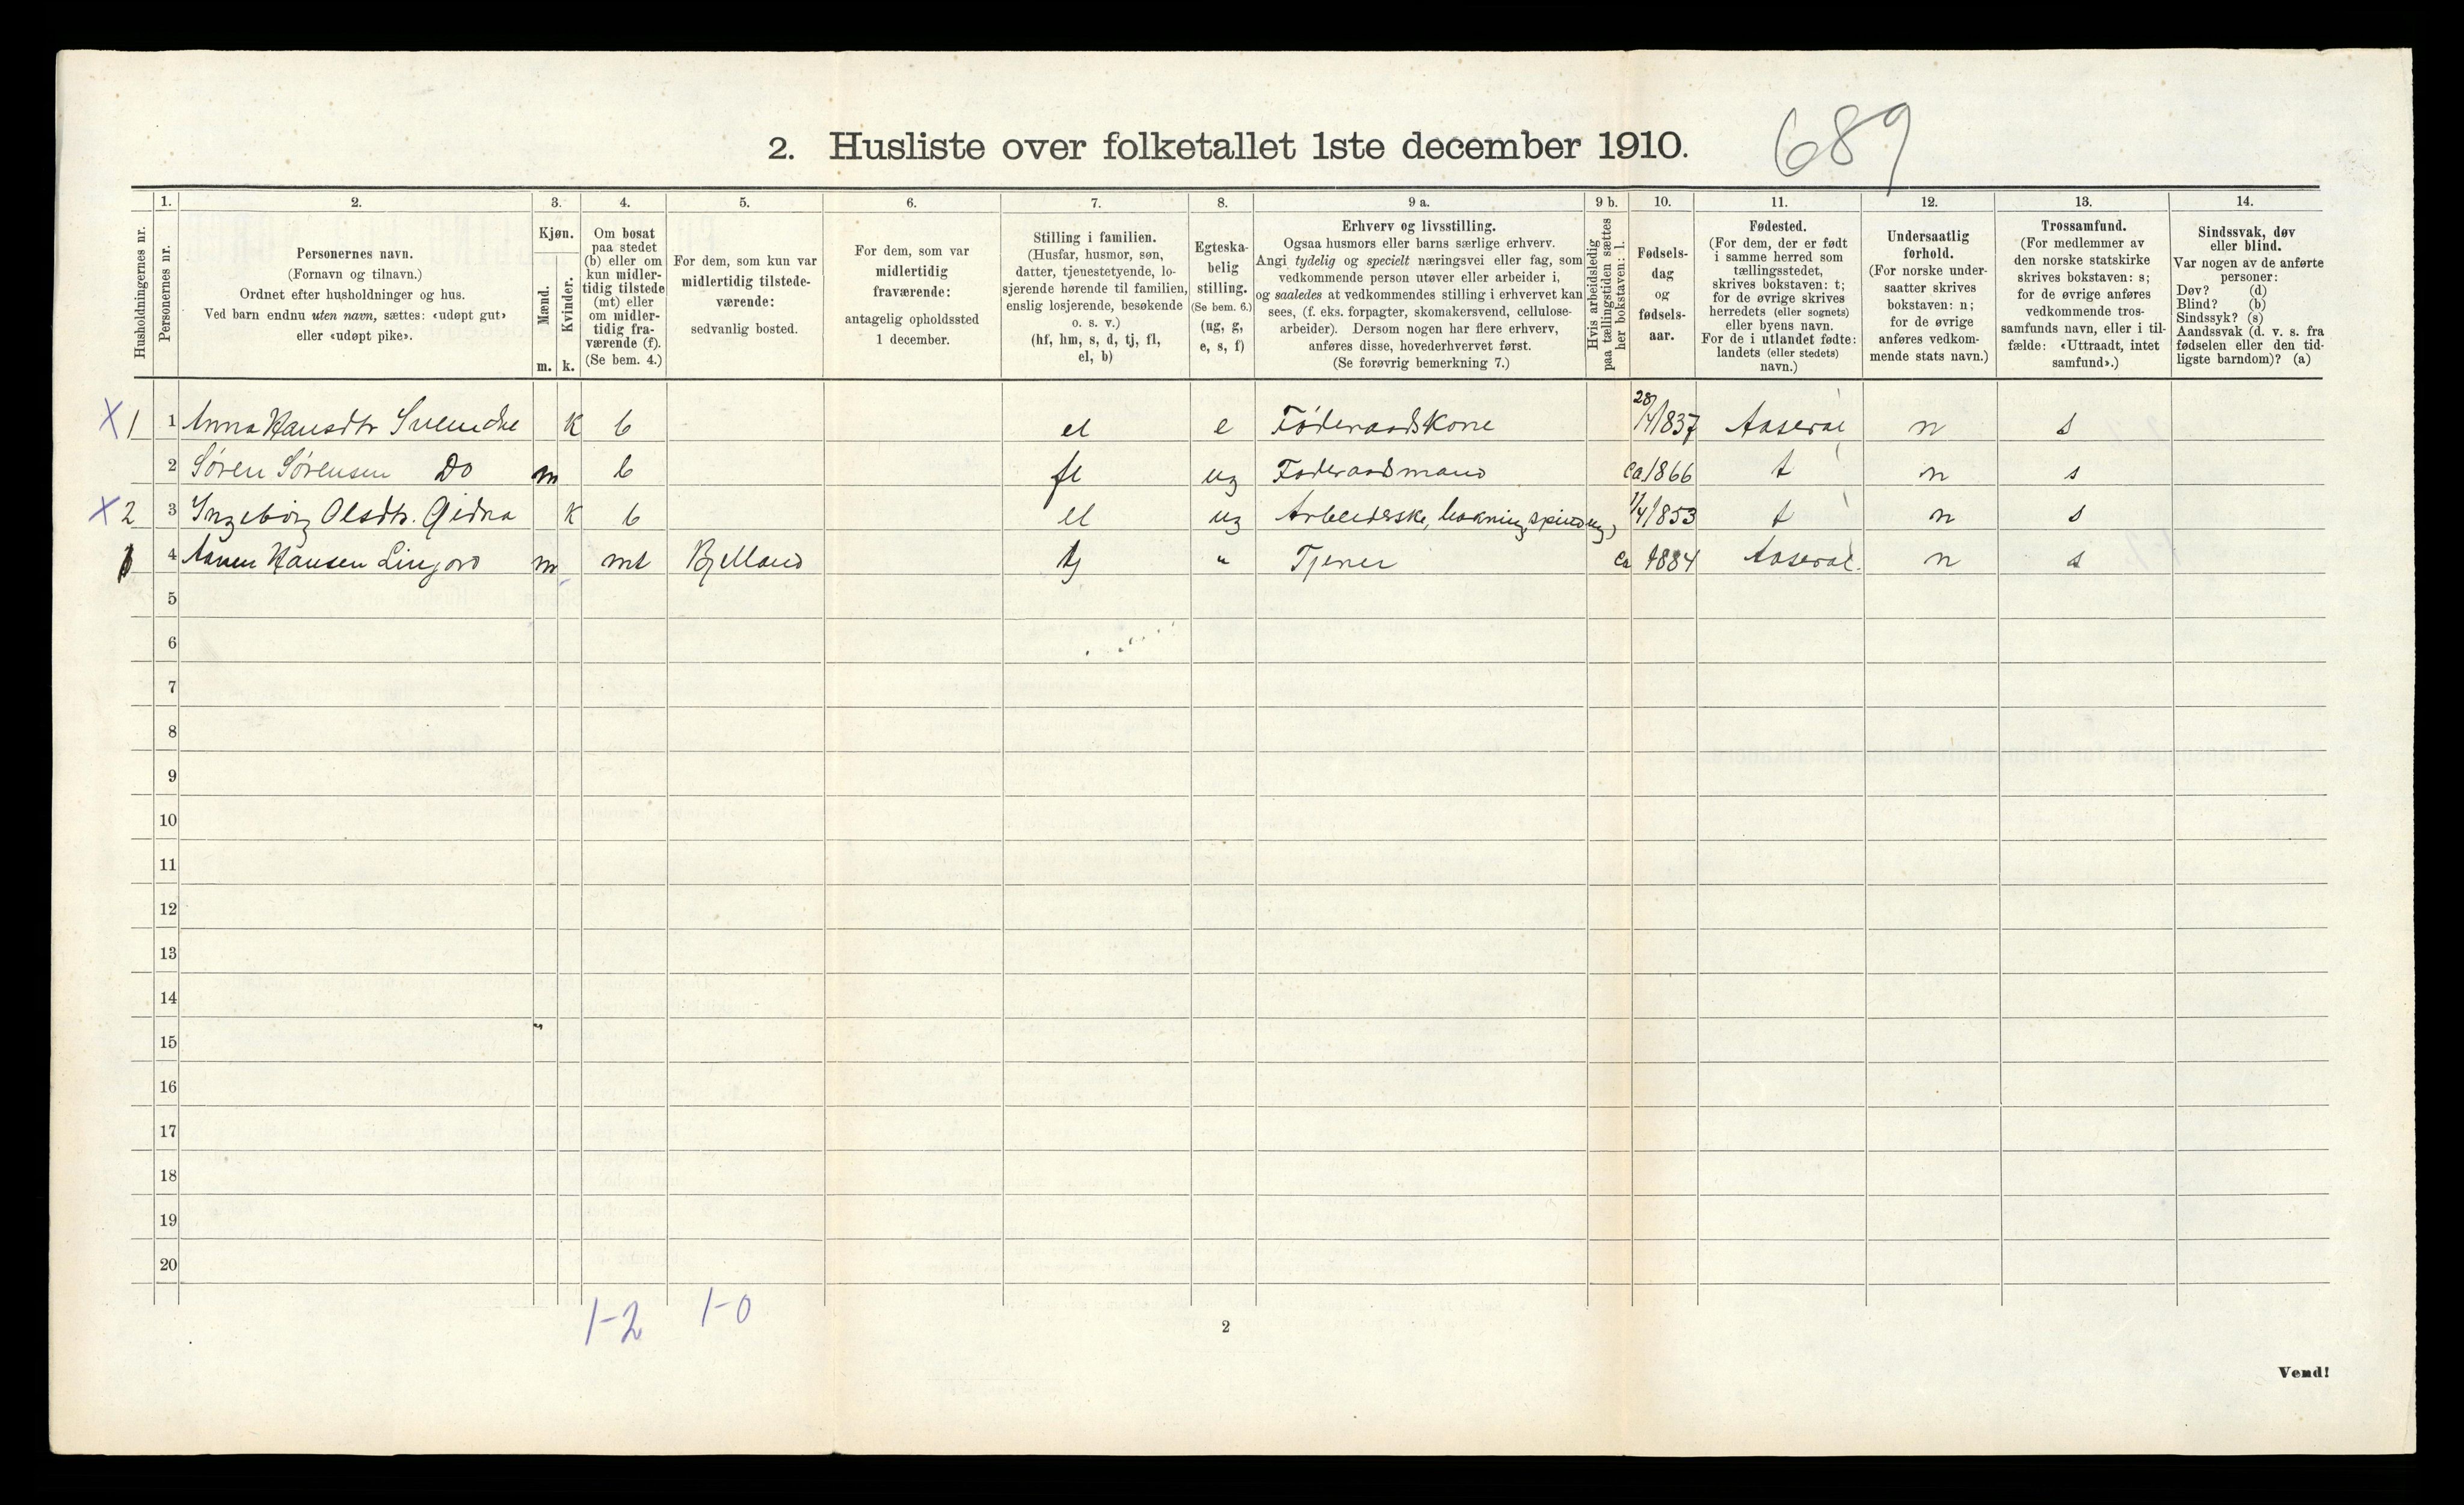 2. Husliste over folketallet 1ste december 1910.
689
Husholdningernes nr.
1. Personernes nr.
2. Personernes navn. (Fornavn og tilnavn.) Ordnet efter husholdninger og hus. Ved barn endnu uten navn, sættes: «udøpt gut» eller «udøpt pike».
3. Kjøn. Mænd. m. Kvinder. k.
4. Om bosat paa stedet (b) eller om kun midlertidig tilstede (mt) eller om midlertidig fraværende (f). (Se bem. 4.)
5. For dem, som kun var midlertidig tilstedeværende: sedvanlig bosted.
6. For dem, som var midlertidig fraværende: antagelig opholdssted 1 december.
7. Stilling i familien. (Husfar, husmor, søn, datter, tjenestetyende, losjerende hørende til familien, enslig losjerende, besøkende o. s. v.) (hf, hm, s, d, tj, fl, el, b)
8. Egteskabelig stilling. (Se bem. 6.) (ug, g, e, s, f)
9 a. Erhverv og livsstilling. Ogsaa husmors eller barns særlige erhverv. Angi tydelig og specielt næringsvei eller fag, som vedkommende person utøver eller arbeider i, og saaledes at vedkommendes stilling i erhvervet kan sees, (f. eks. forpagter, skomakersvend, cellulosearbeider). Dersom nogen har flere erhverv, anføres disse, hovederhvervet først. (Se forøvrig bemerkning 7.)
9 b. Hvis arbeidsledig paa tællingstiden sættes her bokstaven: l.
10. Fødselsdag og fødselsaar.
11. Fødested. (For dem, der er født i samme herred som tællingsstedet, skrives bokstaven: t; for de øvrige skrives herredets (eller sognets) eller byens navn. For de i utlandet fødte: landets (eller stedets) navn.)
12. Undersaatlig forhold. (For norske undersaatter skrives bokstaven: n; for de øvrige anføres vedkommende stats navn.)
13. Trossamfund. (For medlemmer av den norske statskirke skrives bokstaven: s; for de øvrige anføres vedkommende trossamfunds navn, eller i tilfælde: «Uttraadt, intet samfund».)
14. Sindssvak, døv eller blind. Var nogen av de anførte personer: Døv? (d) Blind? (b) Sindssyk? (s) Aandssvak (d. v. s. fra fødselen eller den tidligste barndom)? (a)
X 1 1 Anna Hansdtr k b el e Føderaadskone 28/4/837 Aaseral n s
2 Søren Sørensen Do m b fl ug Føderaadmand ca 1866 t n s
X 2 3 Ingeborg Olsdtr. k b el ug Arbeiderske, spinding 11/4/853 t n s
4 Hansen m mt Bjelland tj " Tjener ca 1884 Aaseral. n s
5
6
7
8
9
10
11
12
13
14
15
16
17
18
19
20
1-2 1-0
2
Vend!